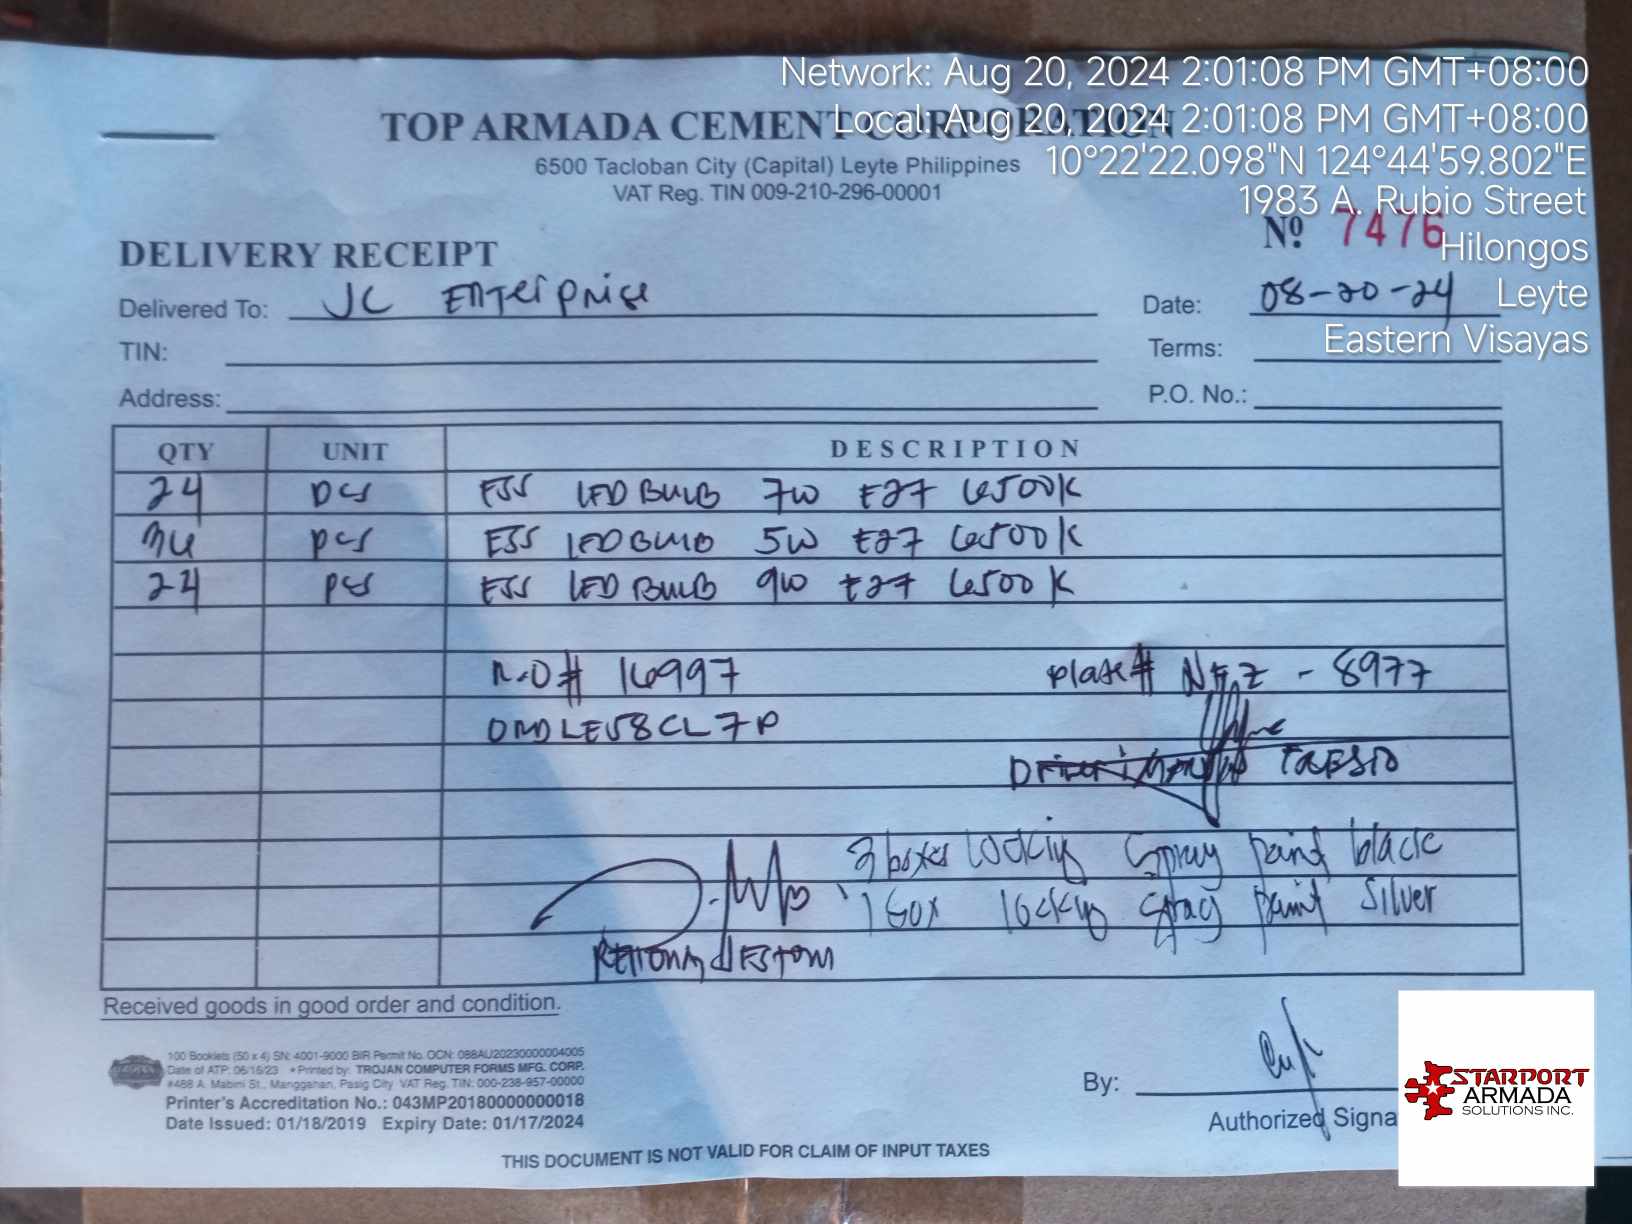 Network: Aug 20, 2024 2:01:08 PM GMT+08:00
Local: Aug 20, 2024 2:01:08 PM GMT+08:00
10°22'22.098"N 124°44'59.802"E
1983 A. Rubio Street
Hilongos
Leyte
Eastern Visayas
TOP ARMADA CEMENT CORPORATION
6500 Tacloban City (Capital) Leyte Philippines
VAT Reg. TIN 009-210-296-00001
Nº 7476
DELIVERY RECEIPT
Delivered To: JC Enterprise Date: 08-20-24
TIN: Terms:
Address: P.O. No.:
QTY UNIT DESCRIPTION
24 pcs ESS LED BULB 7W E27 6500K
36 pcs ESS LED BULB 5W E27 6500K
24 pcs ESS LED BULB 9W E27 6500K
16997 plate# 8977
2 boxes Spray paint black
1 box Spray paint Silver
Received goods in good order and condition.
100 Booklets (50 x 4) SN: 4001-9000 BIR Permit No. OCN: 088AU20230000004005
Date of ATP: 06/15/23 • Printed by: TROJAN COMPUTER FORMS MFG. CORP.
#488 A. Mabini St., Manggahan, Pasig City VAT Reg. TIN: 000-238-957-00000
Printer's Accreditation No.: 043MP20180000000018
Date Issued: 01/18/2019 Expiry Date: 01/17/2024
By:
Authorized Signa
THIS DOCUMENT IS NOT VALID FOR CLAIM OF INPUT TAXES
STARPORT
ARMADA
SOLUTIONS INC.